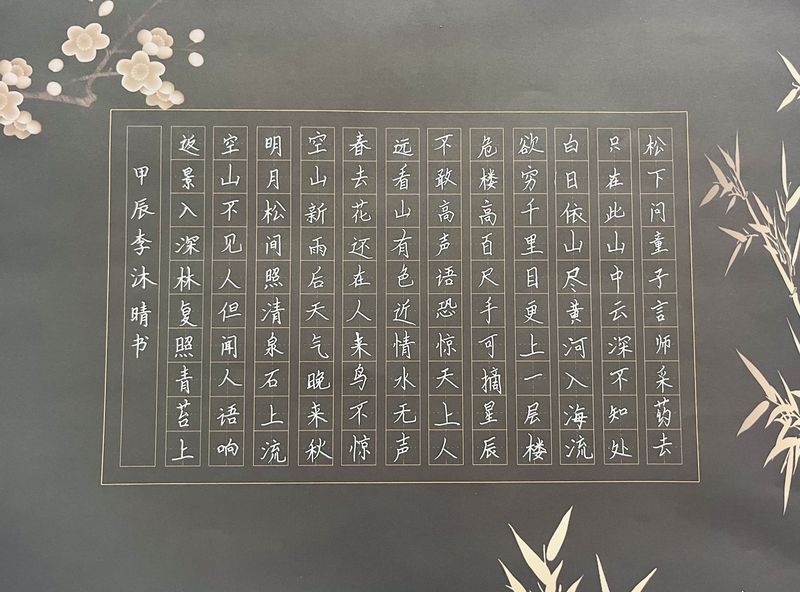 松下问童子言师采药去
只在此山中云深不知处
白日依山尽黄河入海流
欲穷千里目更上一层楼
危楼高百尺手可摘星辰
不敢高声语恐惊天上人
远看山有色近情水无声
春去花还在人来鸟不惊
空山新雨后天气晚来秋
明月松间照清泉石上流
空山不见人但闻人语响
返景入深林复照青苔上
甲辰李沐晴书